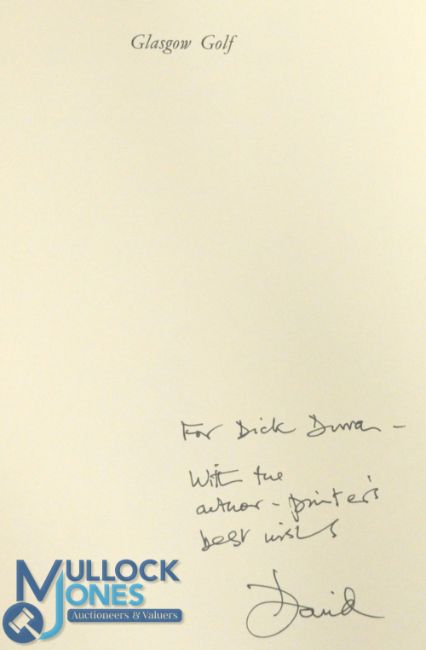 Glasgow Golf
For Dick Durran –
With the
author-printer's
best wishes
David
MULLOCK
JONES
Auctioneers & Valuers